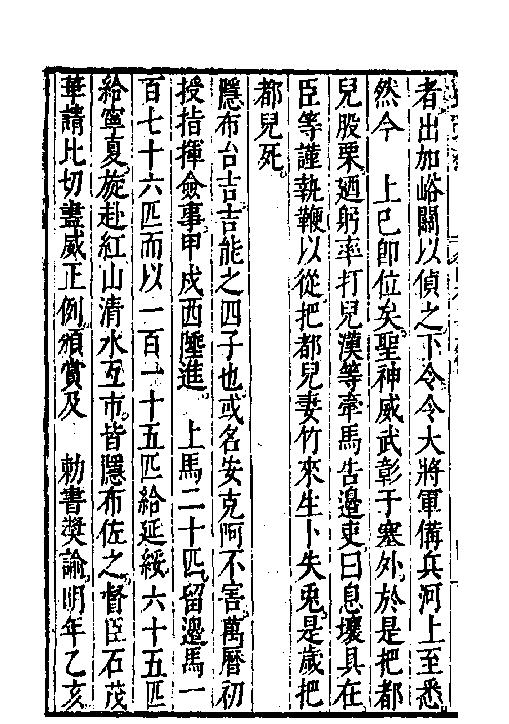 者出加峪關以偵之下令令大將軍備兵河上至悉
然今　上已卽位矣聖神威武彰于塞外於是把都
兒股栗迺躬率打兒漢等牽馬告邊吏曰息壤具在
臣等謹執鞭以從把都兒妻竹來生卜失兎是歲把
都兒死
隱布台吉吉能之四子也或名安克阿不害萬曆初
授指揮僉事甲戍西陲進　上馬二十匹留邊馬一
百七十六匹而以一百一十五匹給延綏六十五匹
給寧夏旋赴紅山清水互市皆隱布佐之督臣石茂
華請比切盡威正例頒賞及　勅書奬諭明年乙亥